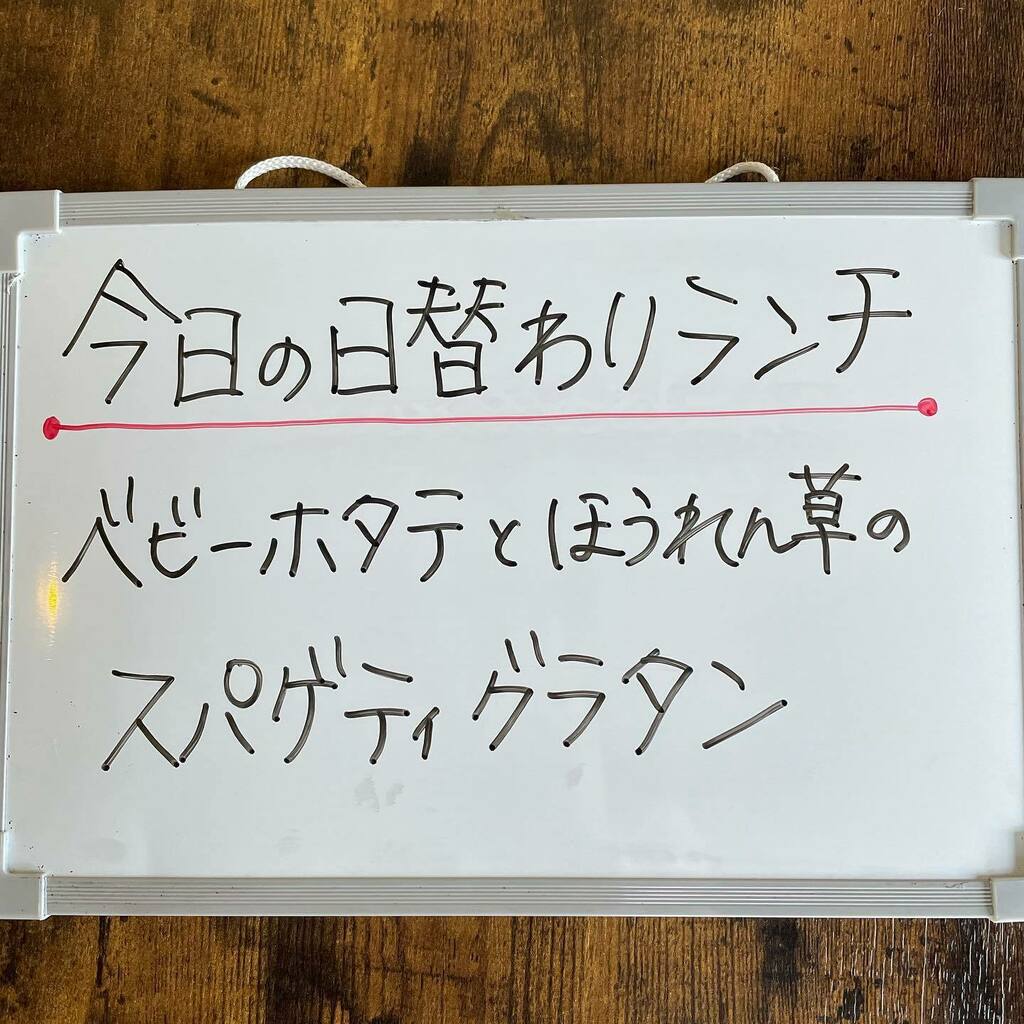 今日の日替わりランチ
ベビーホタテとほうれん草の
スパゲティグラタン